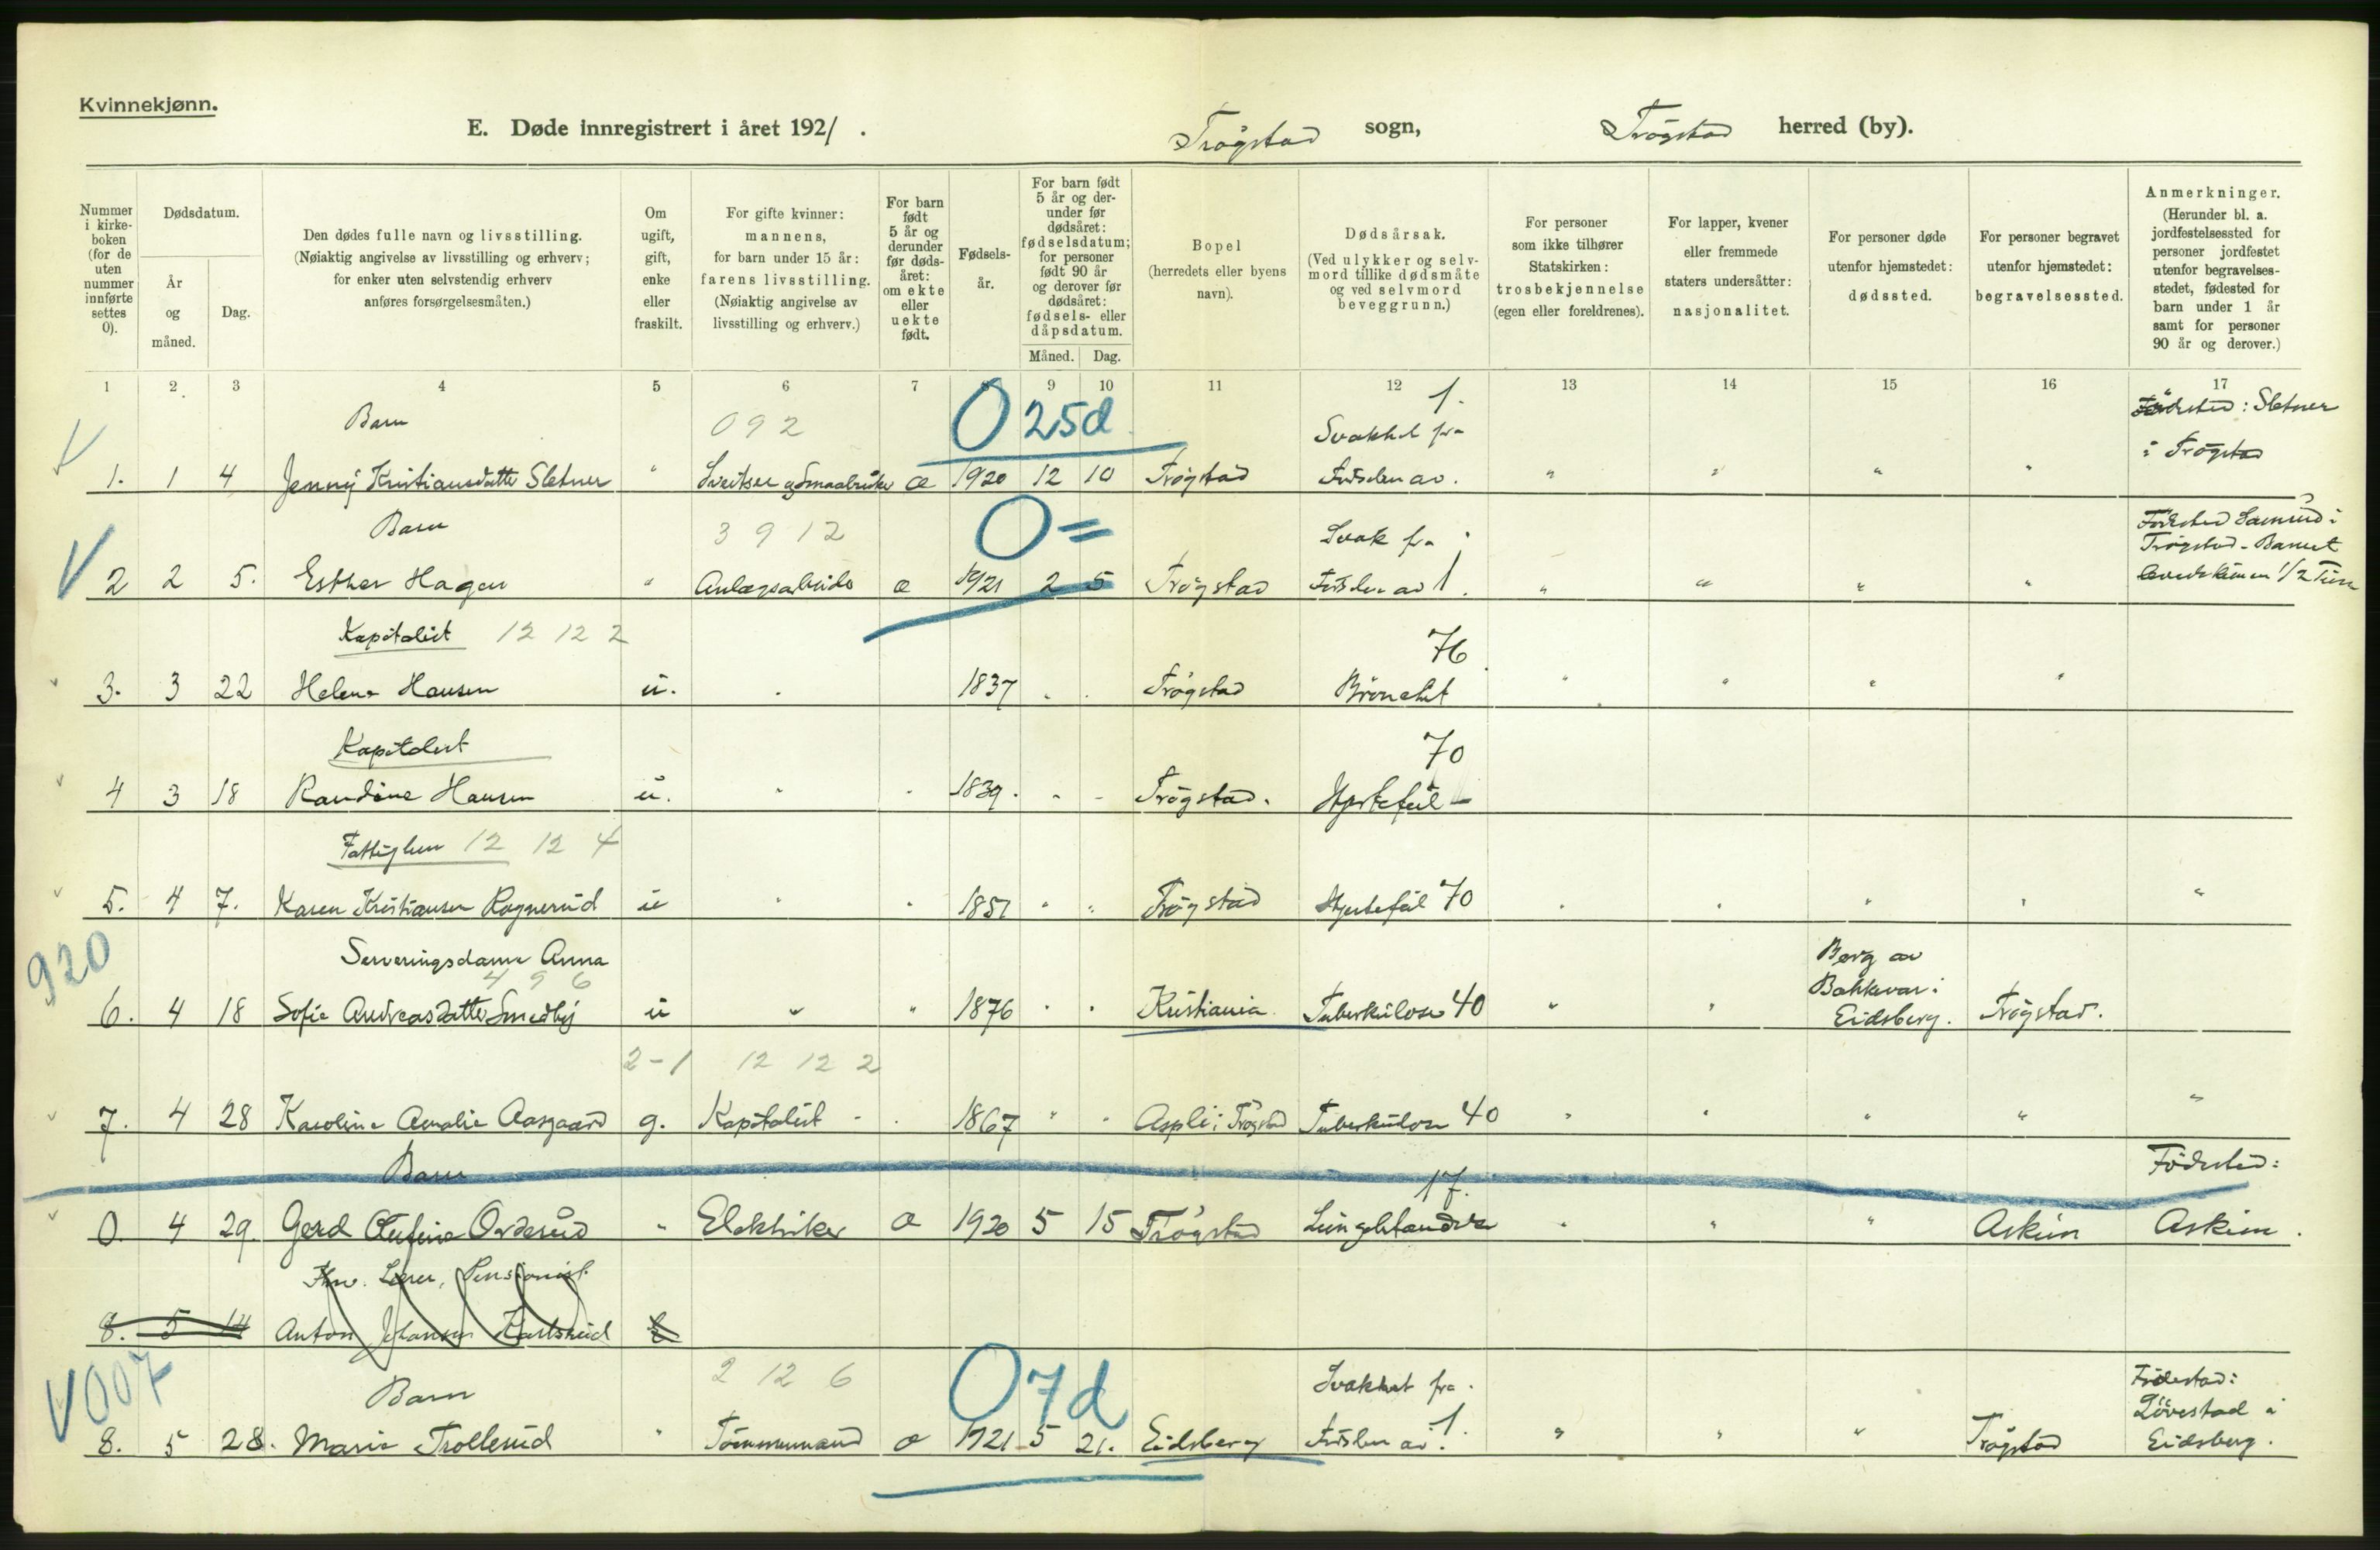 Kvinnekjønn.
E. Døde innregistrert i året 1921.
Trøgstad sogn, Trøgstad herred (by).
Nummer i kirkeboken (for de uten nummer innførte settes 0).
Dødsdatum.
År og måned.
Dag.
Den dødes fulle navn og livsstilling.
(Nøiaktig angivelse av livsstilling og erhverv;
for enker uten selvstendig erhverv
anføres forsørgelsesmåten.)
Om ugift, gift, enke eller fraskilt.
For gifte kvinner:
mannens,
for barn under 15 år:
farens livsstilling.
(Nøiaktig angivelse av
livsstilling og erhverv.)
For barn født 5 år og derunder før dødsåret: om ekte eller uekte født.
Fødselsår.
For barn født 5 år og derunder før dødsåret: fødselsdatum; for personer født 90 år og derover før dødsåret: fødsels- eller dåpsdatum.
Måned. Dag.
Bopel
(herredets eller byens
navn).
Dødsårsak.
(Ved ulykker og selvmord tillike dødsmåte og ved selvmord beveggrunn.)
For personer
som ikke tilhører
Statskirken:
trosbekjennelse
(egen eller foreldrenes).
For lapper, kvener
eller fremmede
staters undersåtter:
nasjonalitet.
For personer døde
utenfor hjemstedet:
dødssted.
For personer begravet
utenfor hjemstedet:
begravelsessted.
Anmerkninger.
(Herunder bl. a.
jordfestelsessted for
personer jordfestet
utenfor begravelses-
stedet, fødested for
barn under 1 år
samt for personer
90 år og derover.)
1 2 3 4 5 6 7 8 9 10 11 12 13 14 15 16 17
Barn 092 0 25d 1. Svakhet fra Fødested: Sletner
i Trøgstad
1. 1 4 Jenny Kristiansdatter Sletner " Sveitser og Smaabruker æ 1920 12 10 Trøgstad Fødslen av. " " " "
Barn 3 9 12 0 = Svak fra Fødested
Trøgstad - Barnet
2 2 5. Esther Hagen " Anlægsarbeider æ 1921 2 5 Trøgstad Fødslen av 1. " " " " 1/2 Time
Kapitalist 12 12 2 76
3. 3 22 Helene Hansen u. " 1837 " " Trøgstad Bronchit " " " "
Kapitalist 70
4 3 18 Randine Hansen u. " " 1839. " " Trøgstad. Hjertefeil
Fattiglem 12 12 4
5. 4 7. Karen Kristiansen Rognerud u " " 1851 " " Trøgstad Hjertefeil 70 " " " " "
920 Serveringsdame Anna Berg av
4 9 6 Bakkevar i
6. 4 18 Sofie Andreasdatter Smedby u " " 1876 " " Kristiania Tuberkulose 40 " " Eidsberg. Trøgstad.
2-1 12 12 2
7. 4 28 Karoline Amalie Aasgaard g. Kapitalist " 1867 " " Aspli i Trøgstad Tuberkulose 40 " " " " "
Barn 17. Fødested:
0. 4 29. Gerd Olufine Orderud " Elektriker æ 1920 5 15 Trøgstad " " " Askim Askim.
Lærer, Pensionist.
8. 5 14 Anton Johansen
V007 Barn 2 12 6 0 7d Svakhet fra Fødested:
Løvestad i
8. 5 28. Marie Trollerud " Tømmermand æ 1921 5 21. Eidsberg Fødslen av. 1. " " " Trøgstad Eidsberg.